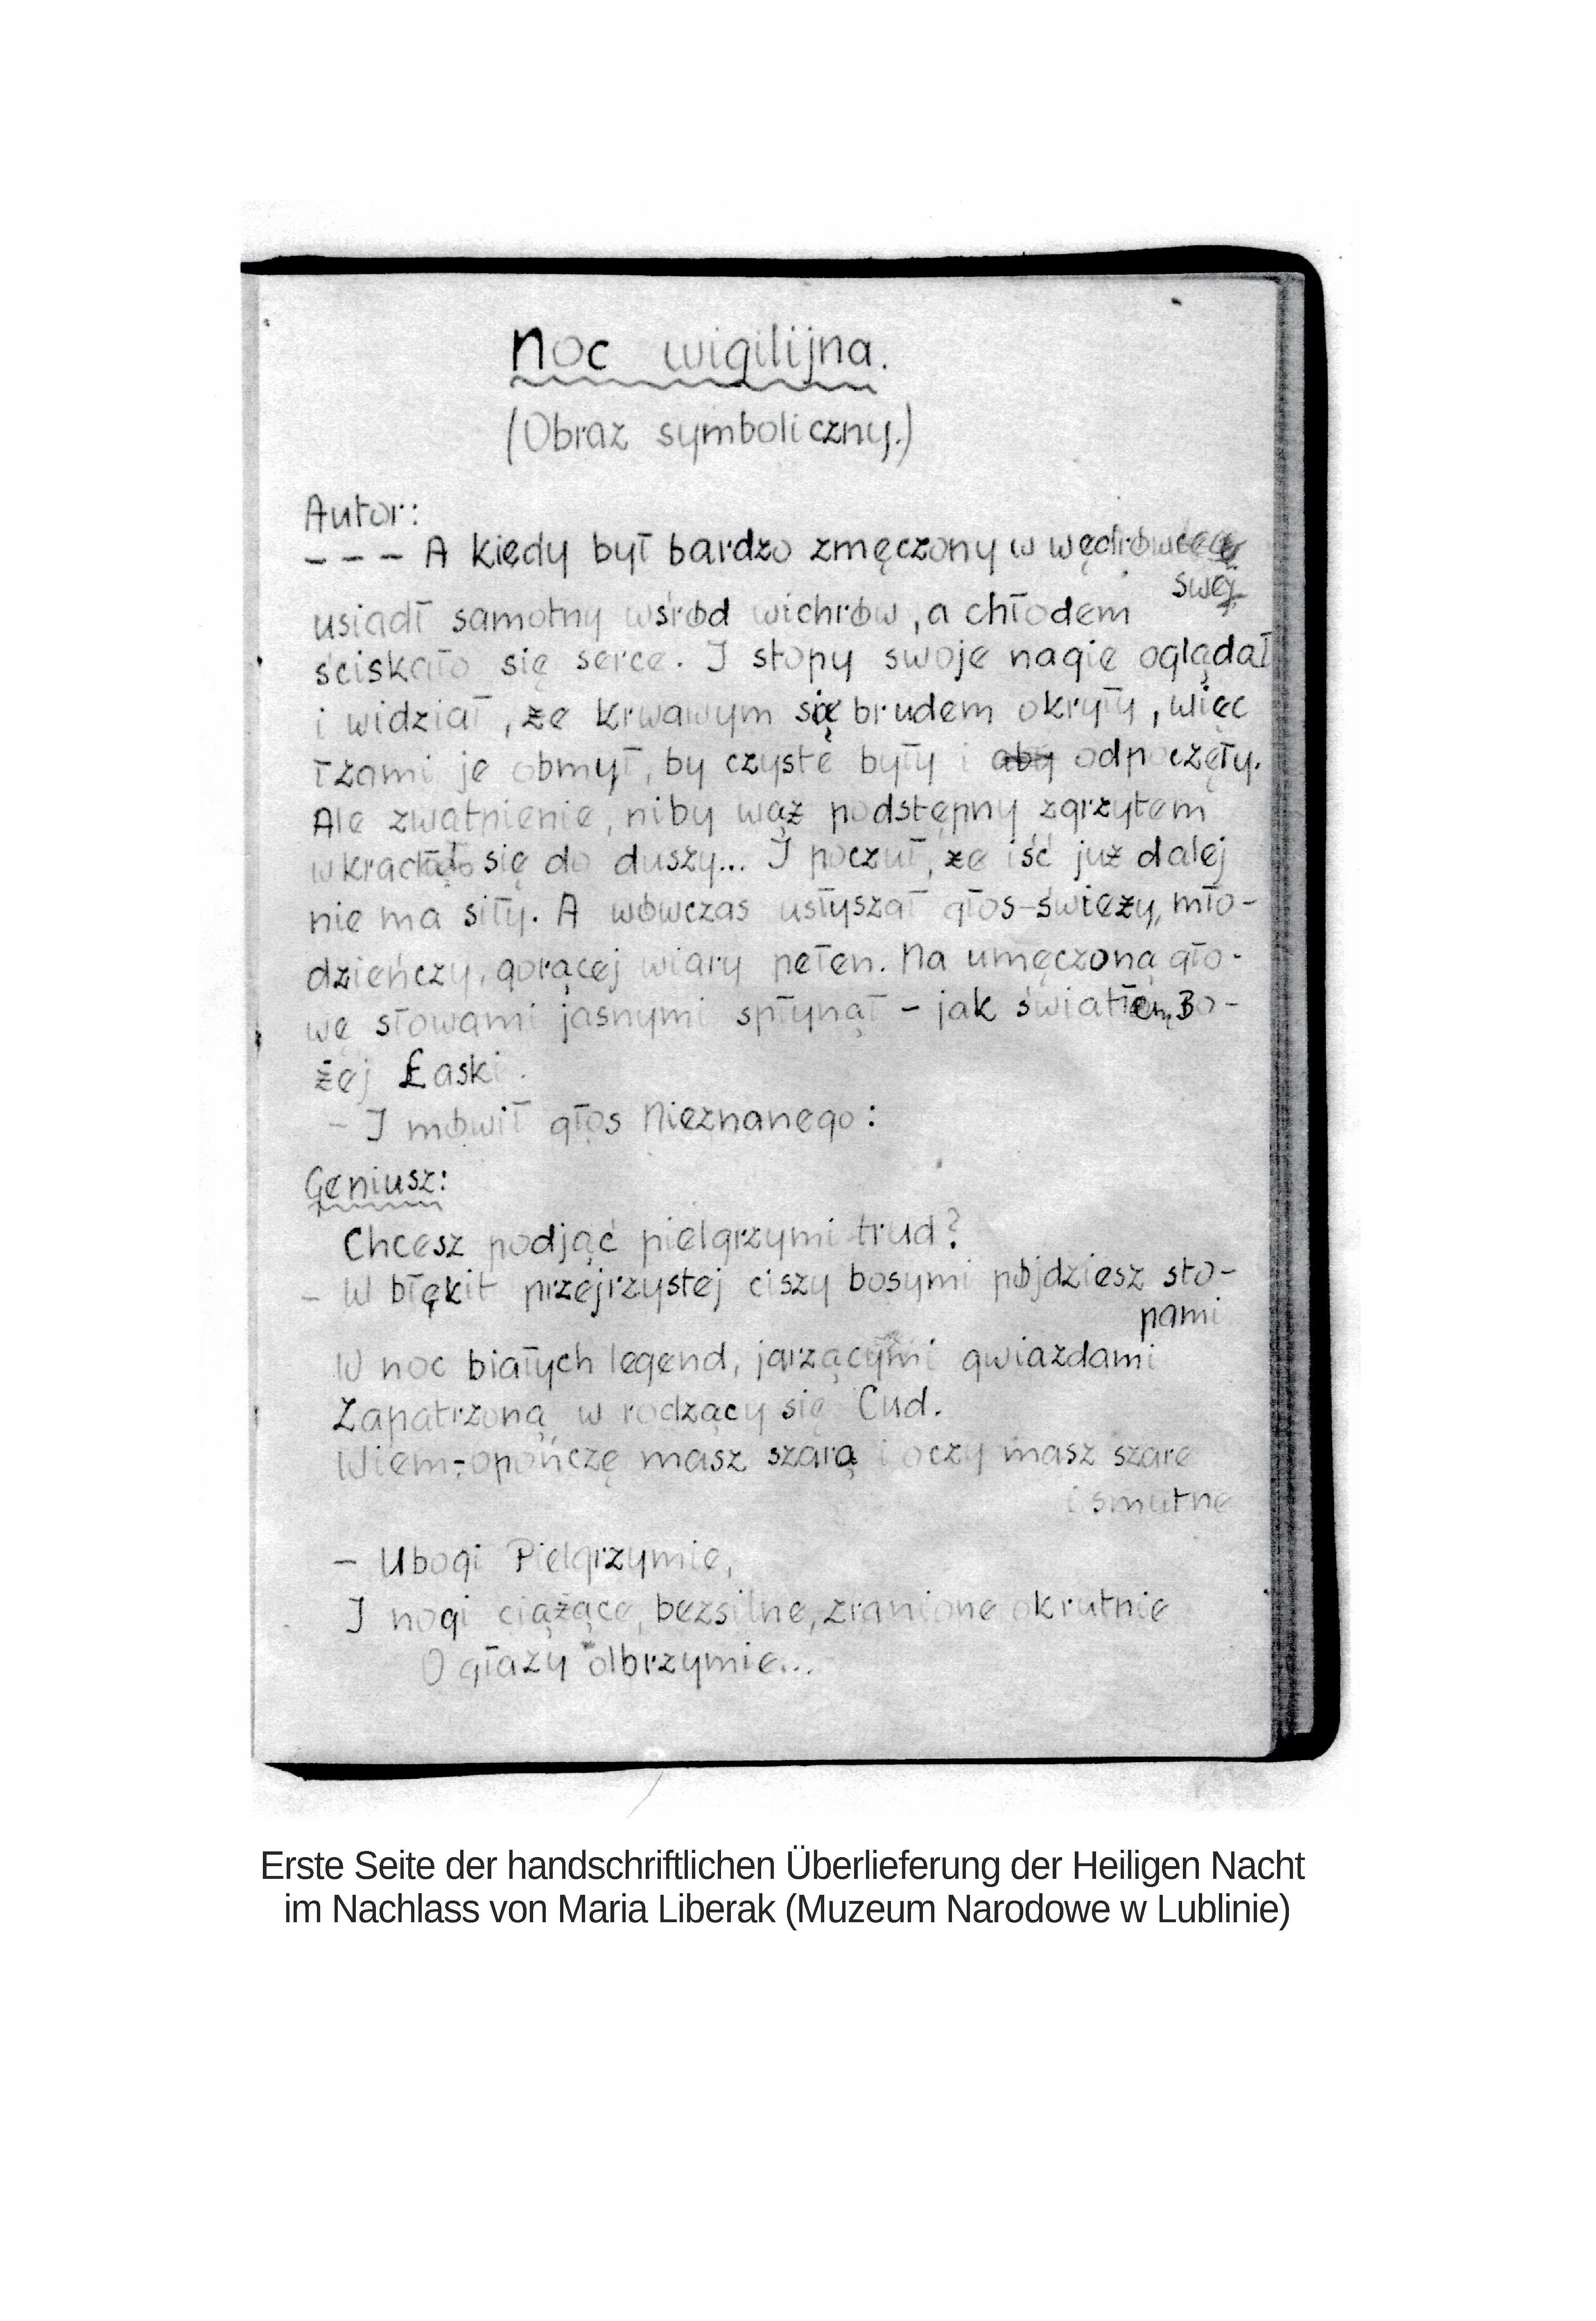 Noc wigilijna.
(Obraz symboliczny.)
Autor:
– – – A kiedy był bardzo zmęczony w wędrówce
swej
usiadł samotny wśród wichrów, a chłodem
ściskało się serce. I stopy swoje nagie oglądał
i widział, że krwawym się brudem okryły, więc
łzami je obmył, by czyste były i aby odpoczęły.
Ale zwątpienie, niby wąż podstępny zgrzytem
się do duszy... I poczuł, że iść już dalej
nie ma siły. A wówczas usłyszał głos–świeży, mło-
dzieńczy, gorącej wiary pełen. Na umęczoną gło-
wę słowami jasnymi spłynął – jak światłem Bo-
żej Łaski.
– I mówił głos Nieznanego:
Geniusz:
Chcesz podjąć pielgrzymi trud?
– W błękit przejrzystej ciszy bosymi pójdziesz sto-
pami
W noc białych legend, jarzącymi gwiazdami
Zapatrzoną w rodzący się Cud.
Wiem–opończę masz szarą i oczy masz szare
i smutne
– Ubogi Pielgrzymie,
I nogi ciążące, bezsilne, zranione okrutnie
O głazy olbrzymie...
Erste Seite der handschriftlichen Überlieferung der Heiligen Nacht
im Nachlass von Maria Liberak (Muzeum Narodowe w Lublinie)